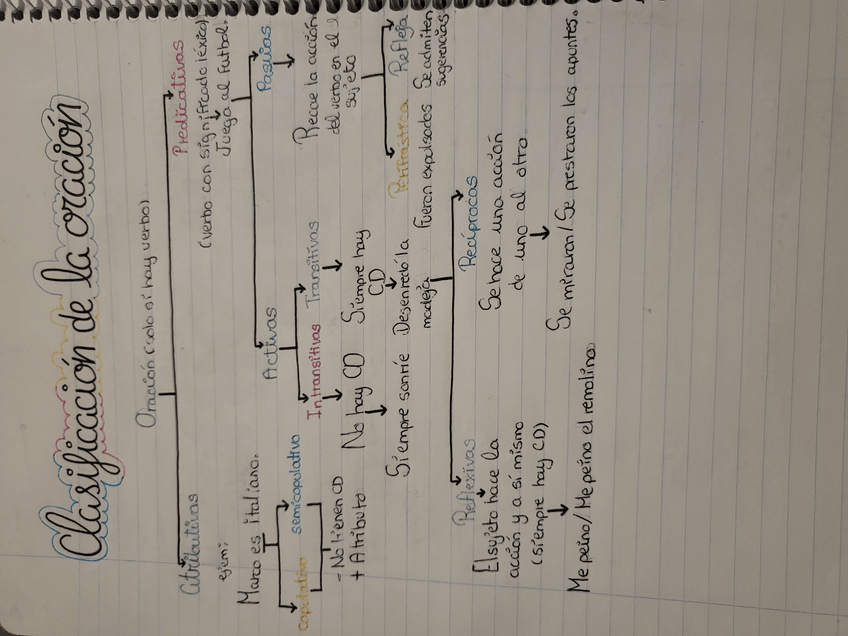 Clasificación de la oración
Oración (solo si hay verbo)
atributivas
ejem:
Marco es italiano.
copulativo
semicopulativo
- No tienen CD
+ Atributo
Predicativas
(verbo con significado léxico)
Juega al futbol.
Activas
Intransitivas
No hay CD
Siempre sonríe
Transitivas
Siempre hay
CD
Desenredo la
madeja
Reflexivas
El sujeto hace la
acción y a sí mismo
(siempre hay CD)
Me peino/Me peino el remolino
Recíprocas
Se hace una acción
de uno al otro
Se miraron/Se prestaron los apuntes.
Pasivas
Recae la acción
del verbo en el
sujeto
Perifrástica
Fueron expulsados
Refleja
Se admiten
sugerencias